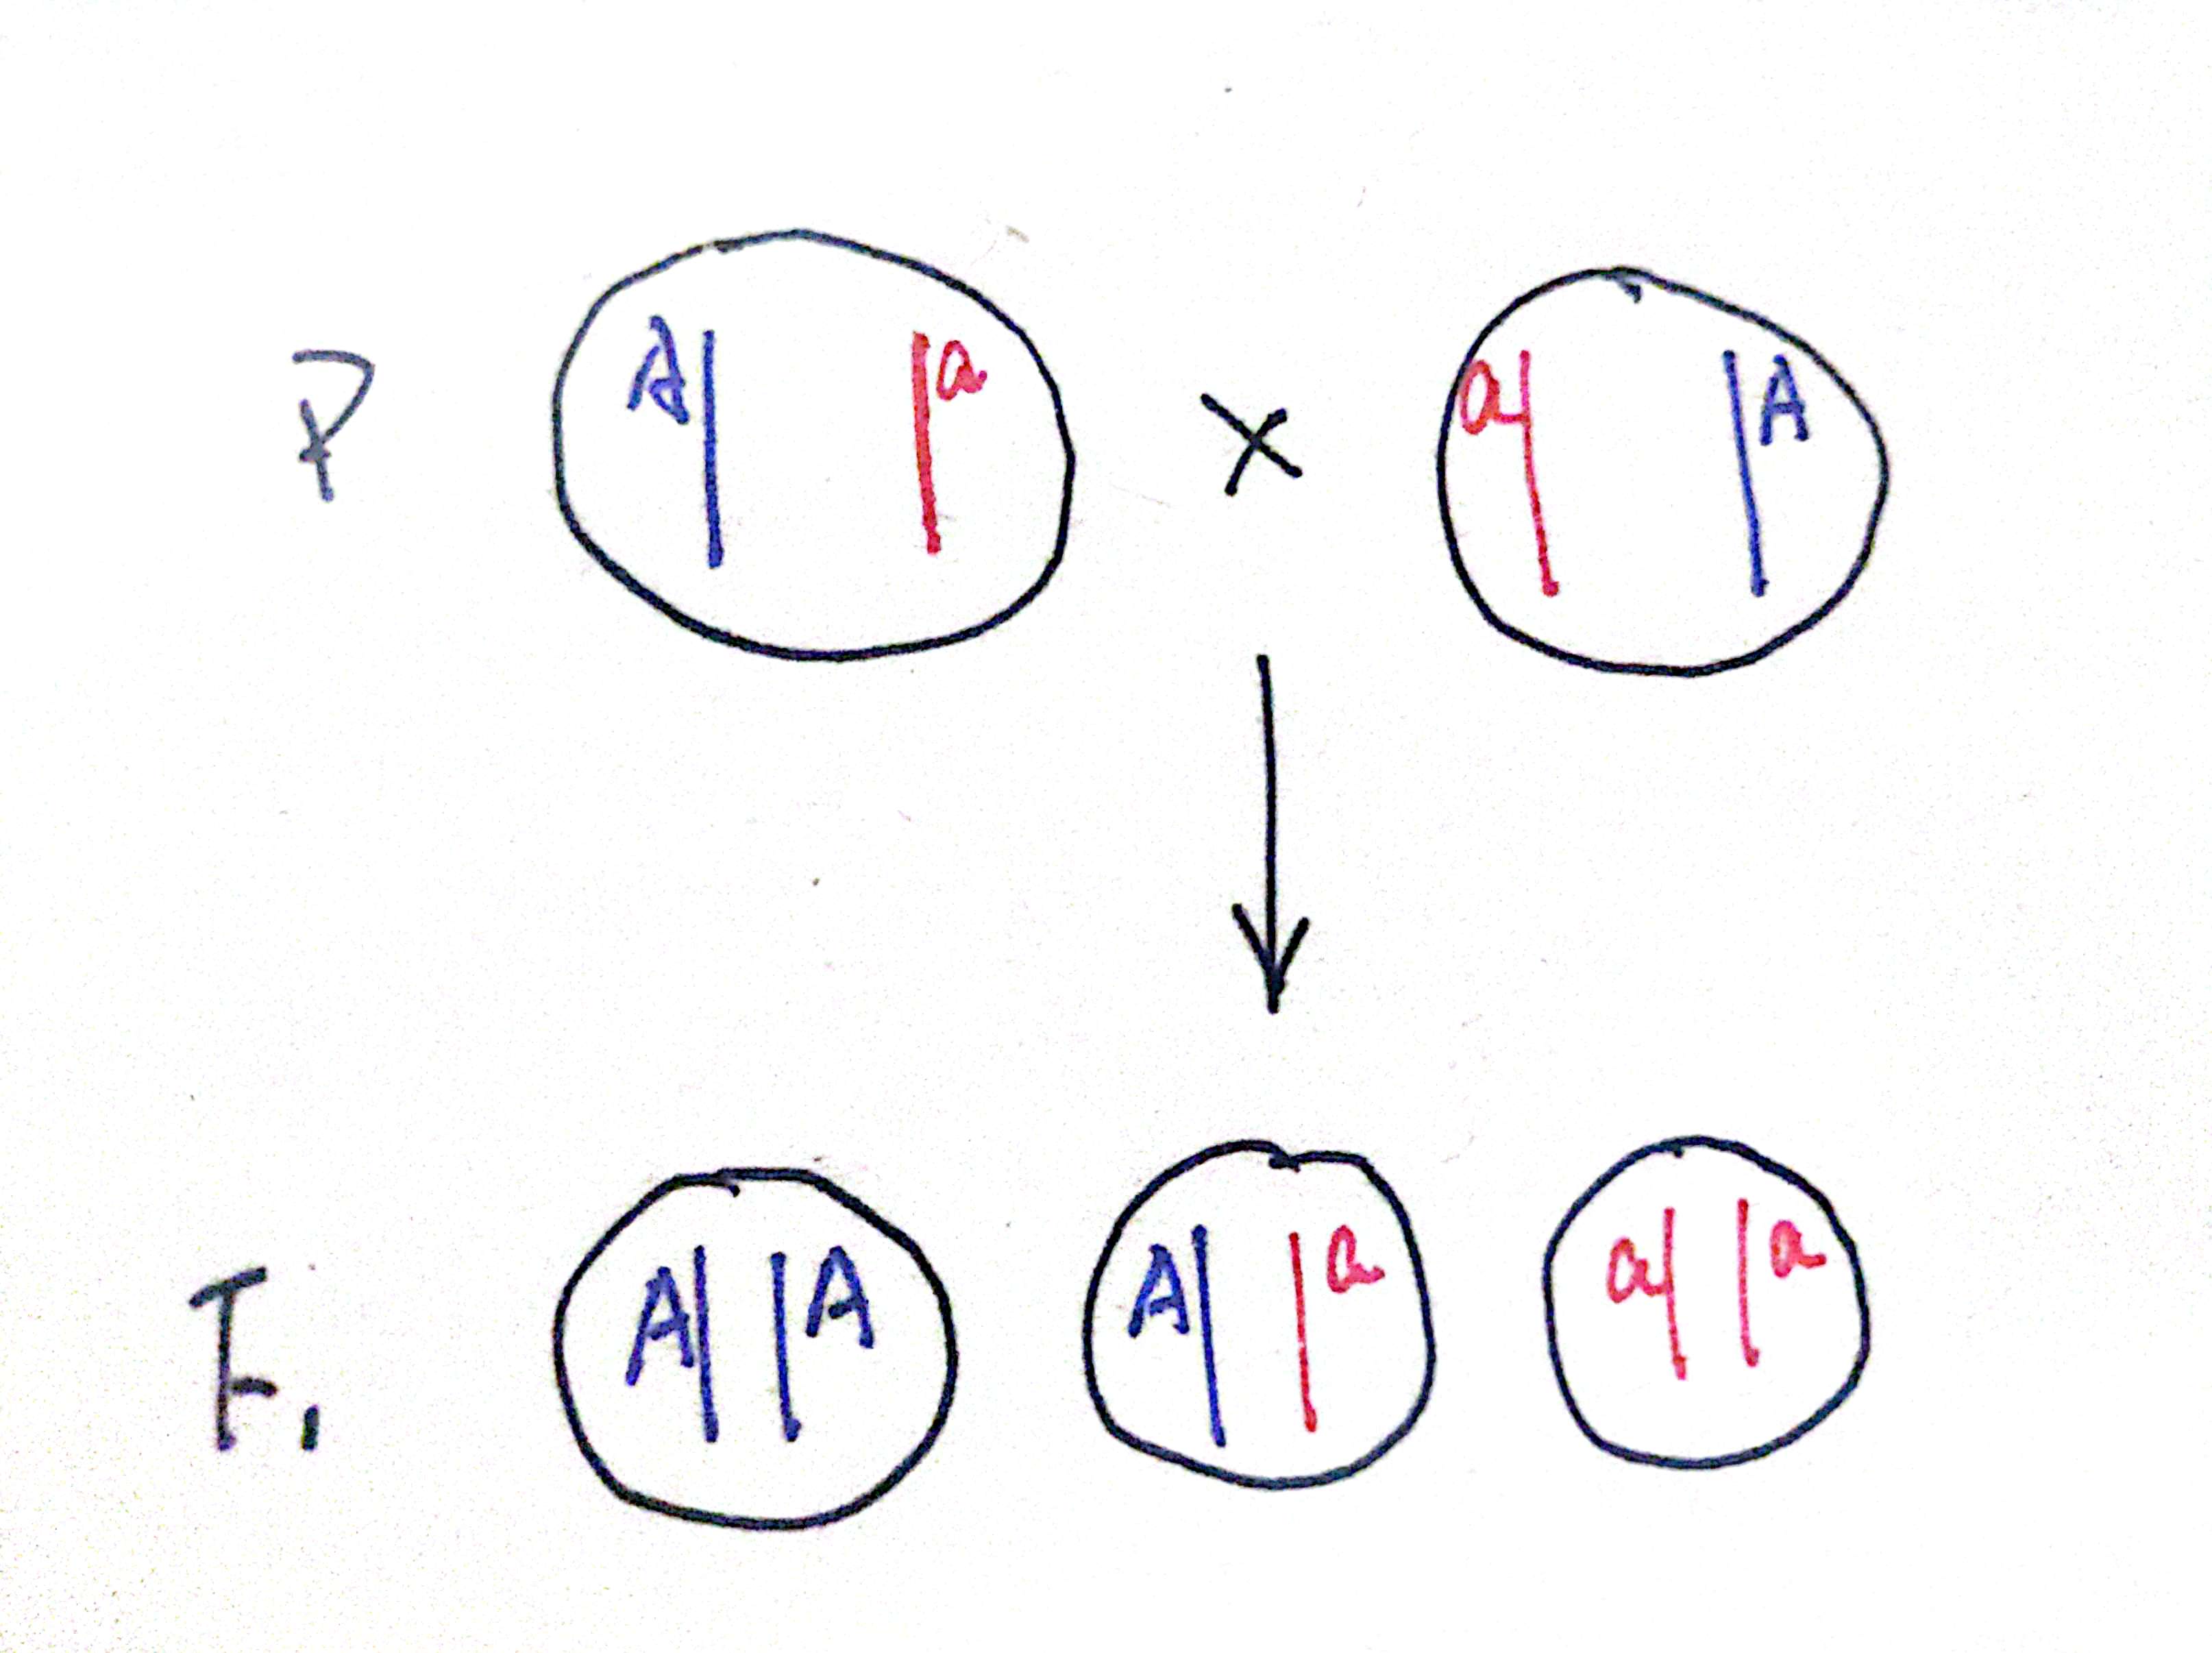 P A a × a A
F1 A A A a a a